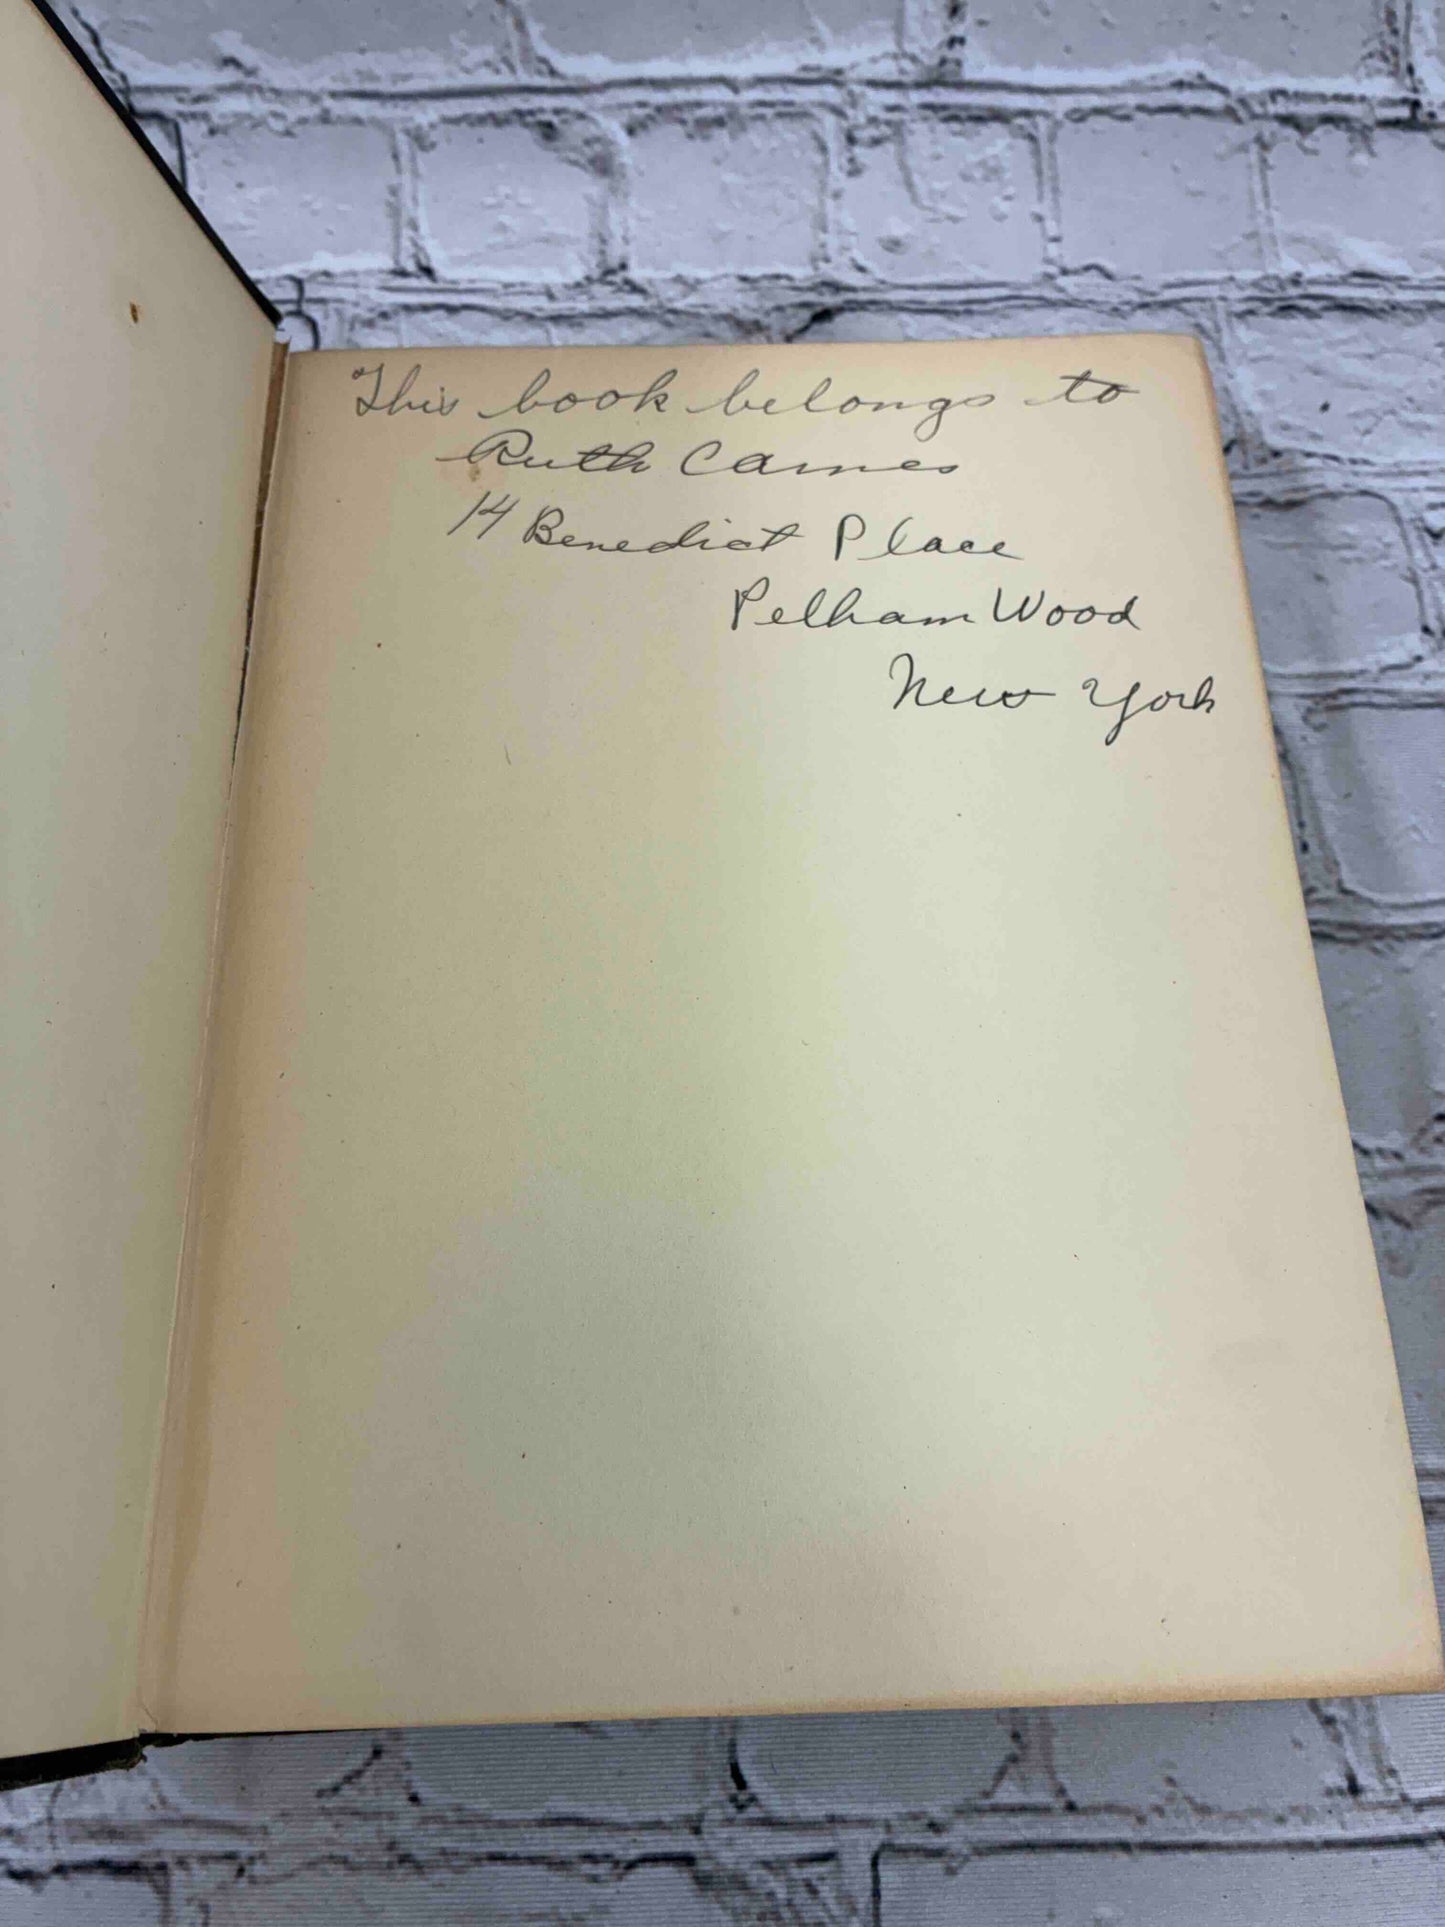 This book belongs to
Ruth Carnes
14 Benedict Place
Pelham Wood
New York